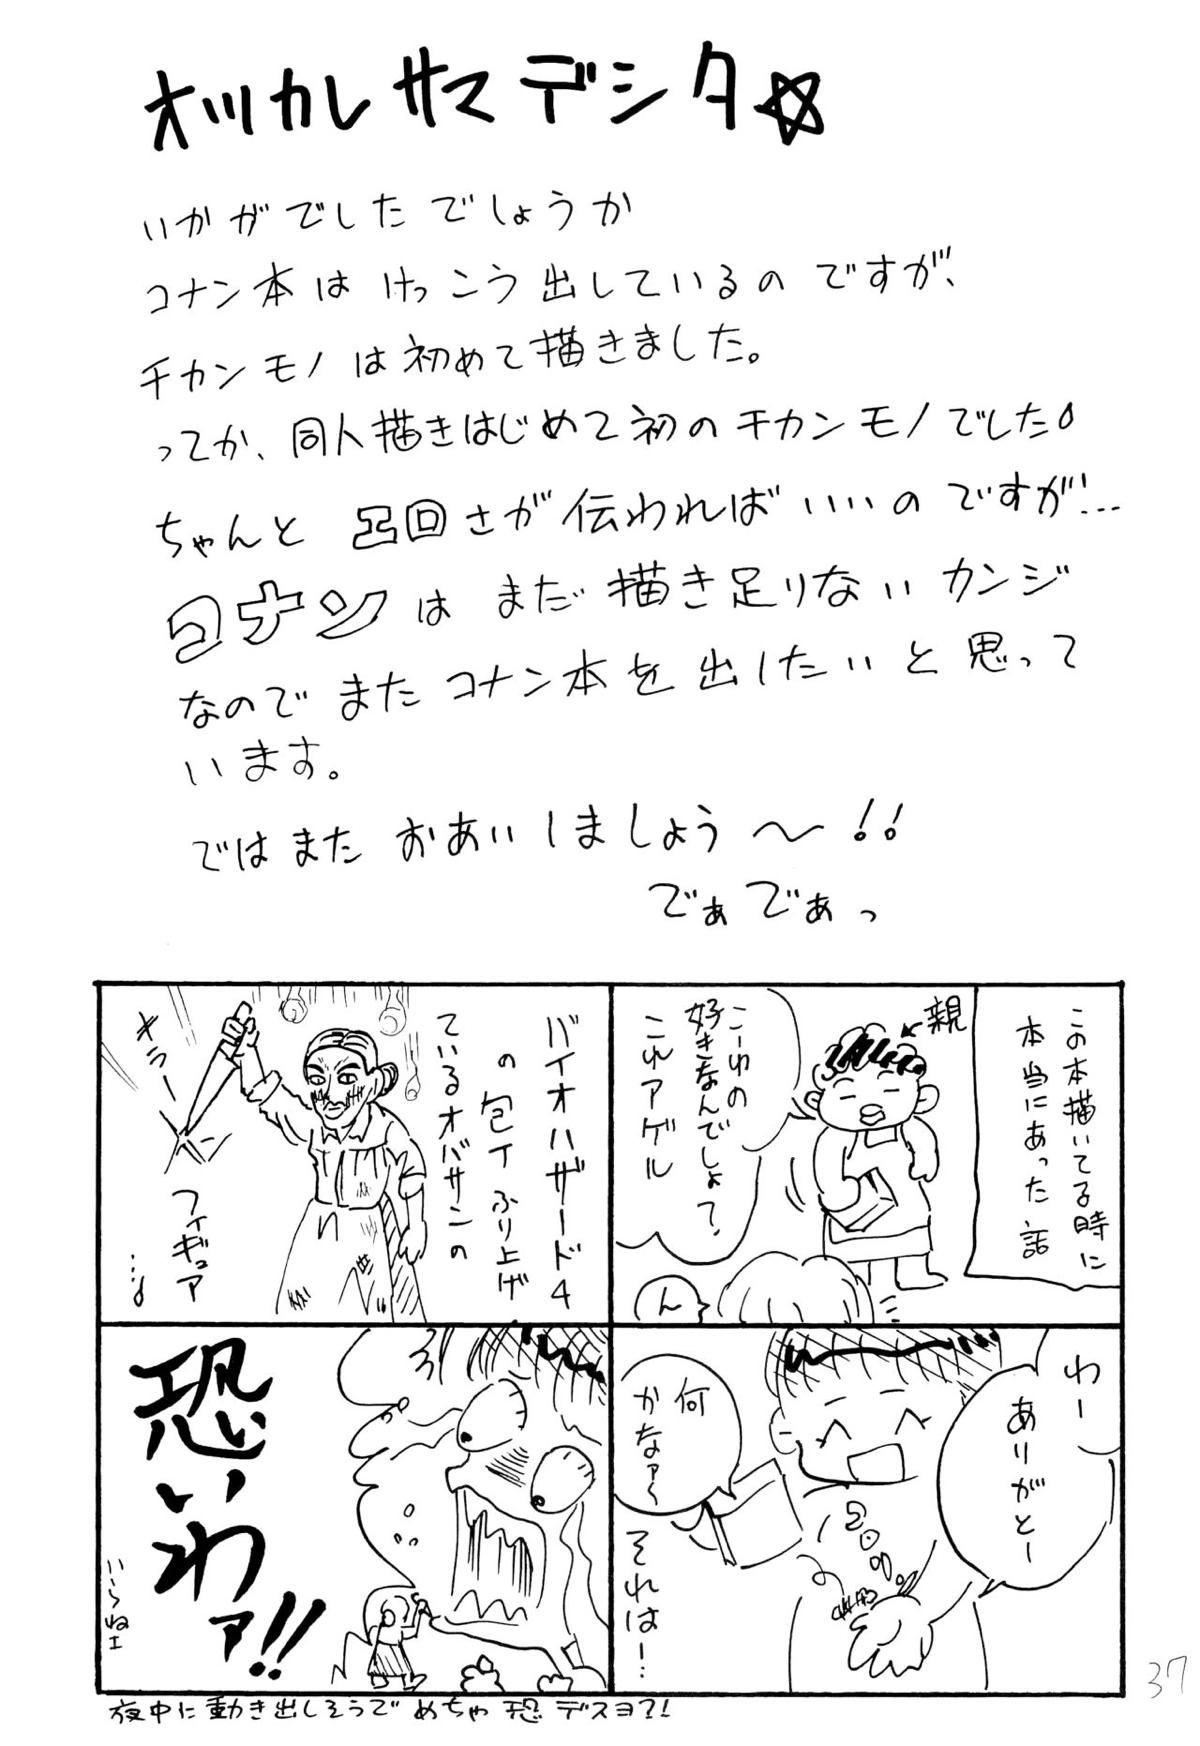 オツカレサマデシタ☆
いかがでしたでしょうか
コナン本はけっこう出しているのですが、
チカンモノは初めて描きました。
ってか、同人描きはじめて初のチカンモノでした
ちゃんと
さが伝わればいいのですが…
コナンはまだ描き足りないカンジ
なのでまたコナン本を出したいと思って
います。
ではまたおあいしましょう〜!!
でぁでぁっ
この本描いてる時に
本当にあった話
親
こーゆの
好きなんでしょ?
これアゲル
ん
わー
ありがとー
何
かなァ〜
それは!
バイオハザード4
の包丁ふり上げ
ているオバサンの
フィギュア
…
キラーン
恐いわァ!!
いらねエ
夜中に動き出しそうでめちゃ恐デスヨ?!
37